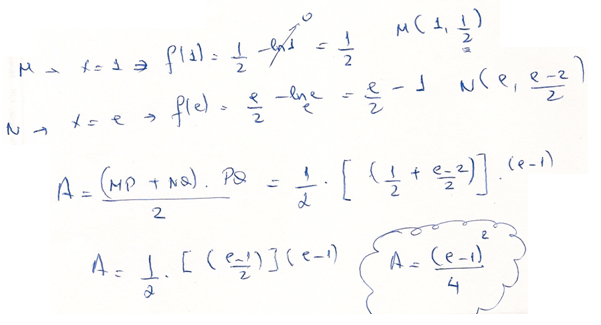 M → x = 1 ⇒ f(1) = 1/2 - ln 1 (0) = 1/2 M(1, 1/2)
N → x = e → f(e) = e/2 - ln e = e/2 - 1 N(e, e-2/2)
A = (MP + NQ) . PQ / 2 = 1/2 . [ (1/2 + e-2/2) ] . (e-1)
A = 1/2 . [ (e-1/2) ] (e-1) A = (e-1)² / 4